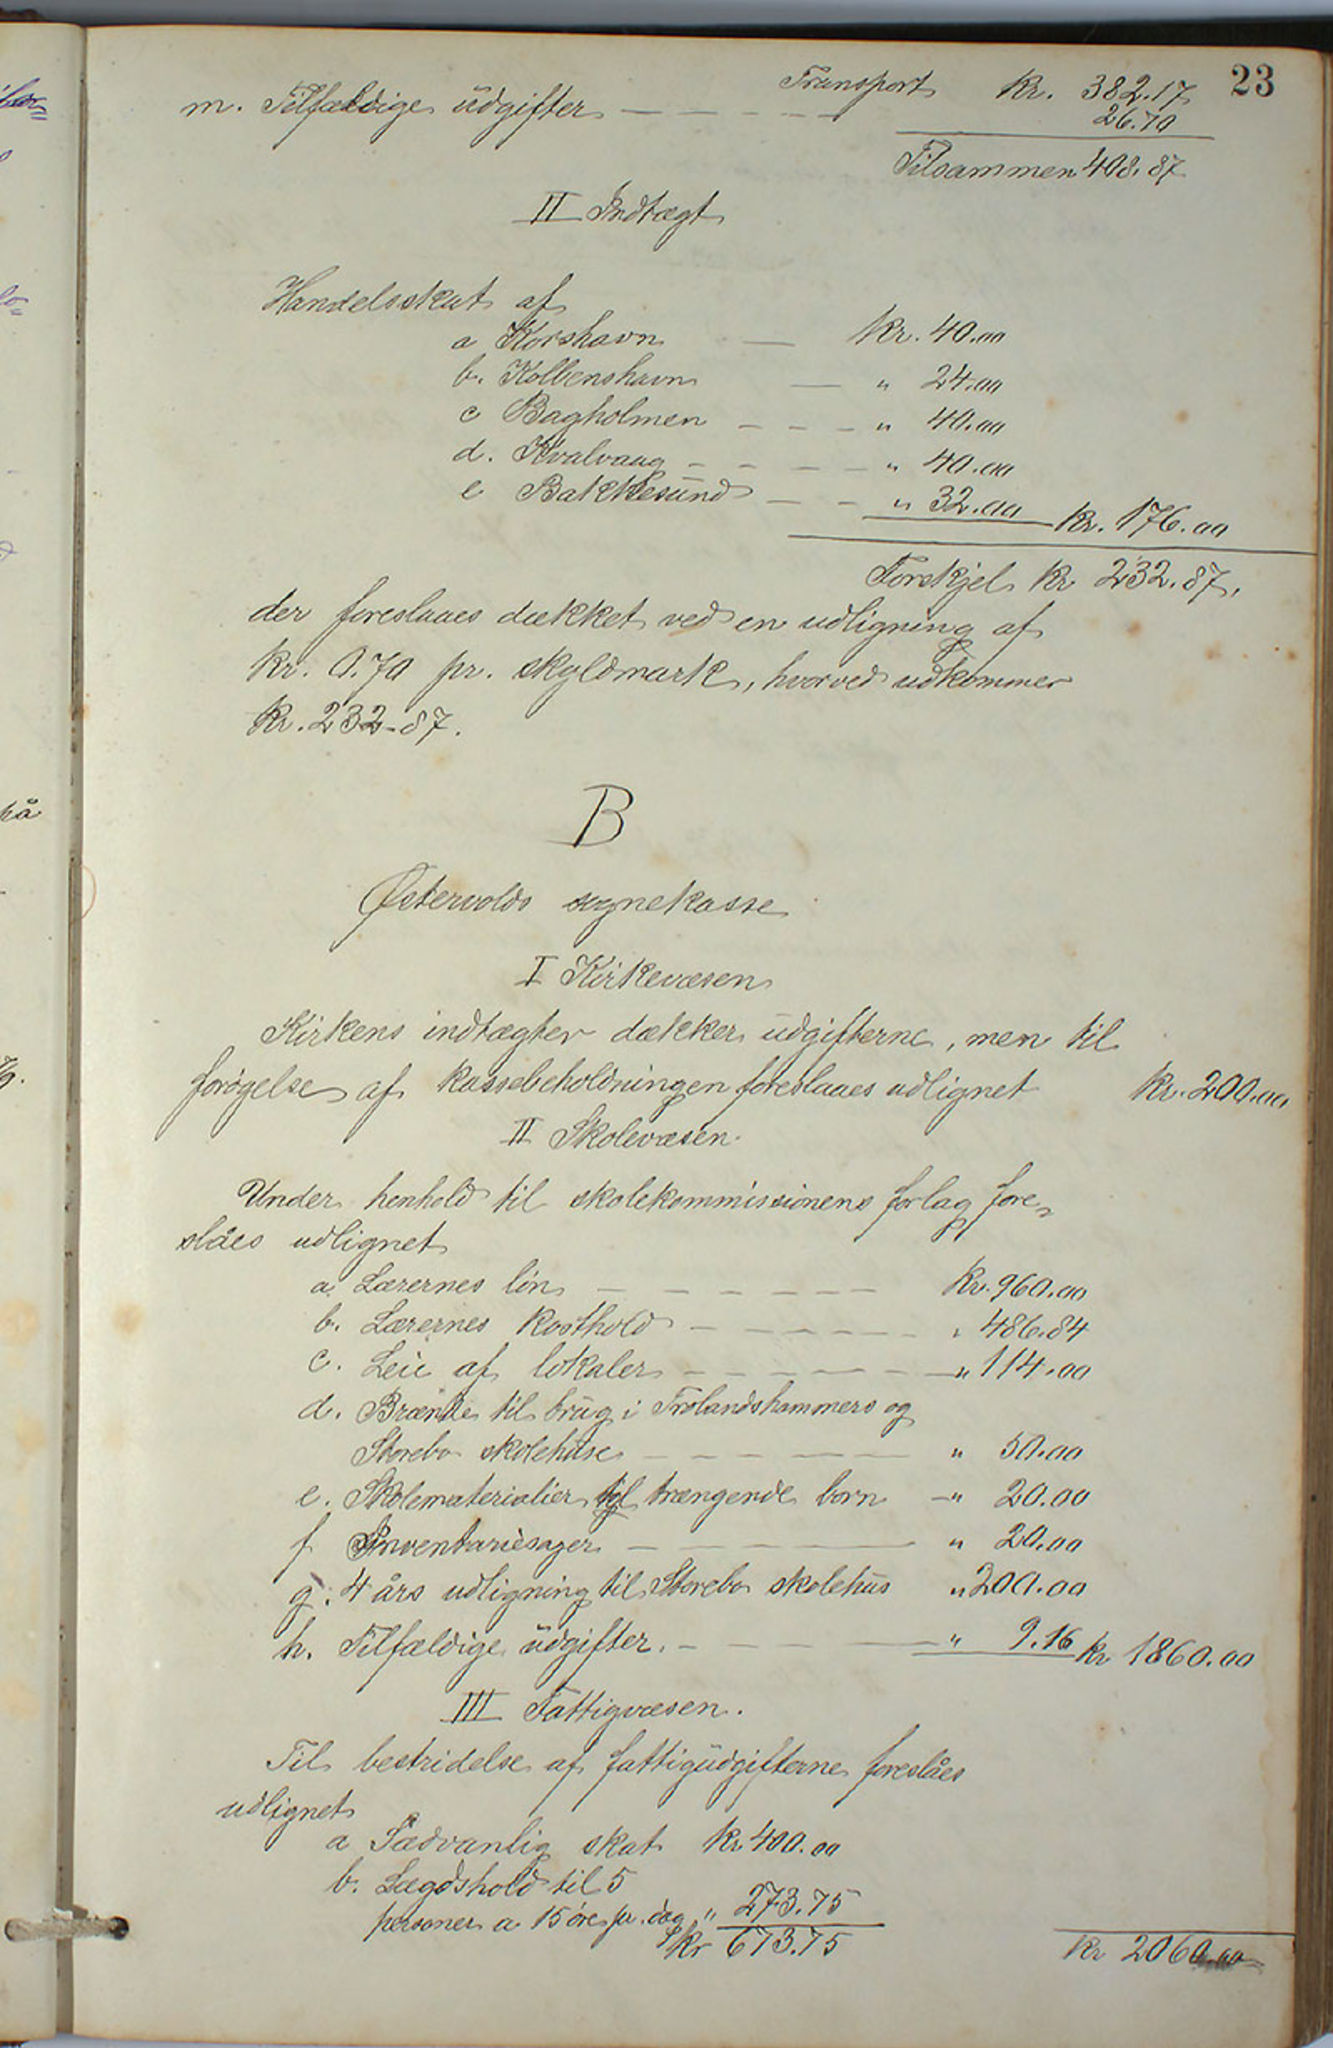 23
Transport Kr. 382.17
m. Tilfældige udgifter — — — — — 26.70
Tilsammen 408.87
II Indtægt
Handelsskat af
a Korshavn — Kr. 40.00
b. Kolbenshavn — " 24.00
c Bagholmen — — — " 40.00
d. Kvalvaag — — — — " 40.00
e Bakkesund — — " 32.00 Kr. 176.00
Forskjel Kr 232.87.
der foreslaaes dækket ved en udligning af
Kr. 0.70 pr. skyldmark, hvorved udkommer
Kr. 232-87.
B
Østervolds sognekasse
I Kirkevæsen
Kirkens indtægter dækker udgifterne, men til
forøgelse af kassebeholdningen foreslaaes udlignet Kr. 200.00
II Skolevæsen.
Under henhold til skolekommissionens forlag fore-
slåes udlignet
a Lærernes løn — — — — — — Kr. 960.00
b. Lærernes kosthold — — — — — " 486.84
c. Leie af lokaler — — — — — " 114.00
d. Brænde til brug i Frolandshammers og
Storebø skolehuse — — — — — " 50.00
e. Skolematerialier til trængende børn — " 20.00
f Inventariesager — — — " 20.00
g. 4 års udligning til Storebø skolehus " 200.00
h. Tilfældige udgifter. — — — — " 9.16 Kr 1860.00
III Fattigvæsen.
Til bestridelse af fattigudgifterne foreslåes
udlignet
a Sædvanlig skat Kr 400.00
b. Lægdshold til 5
personer a 15 øre pr. dag " 273.75
Kr 673.75 Kr 2060.00